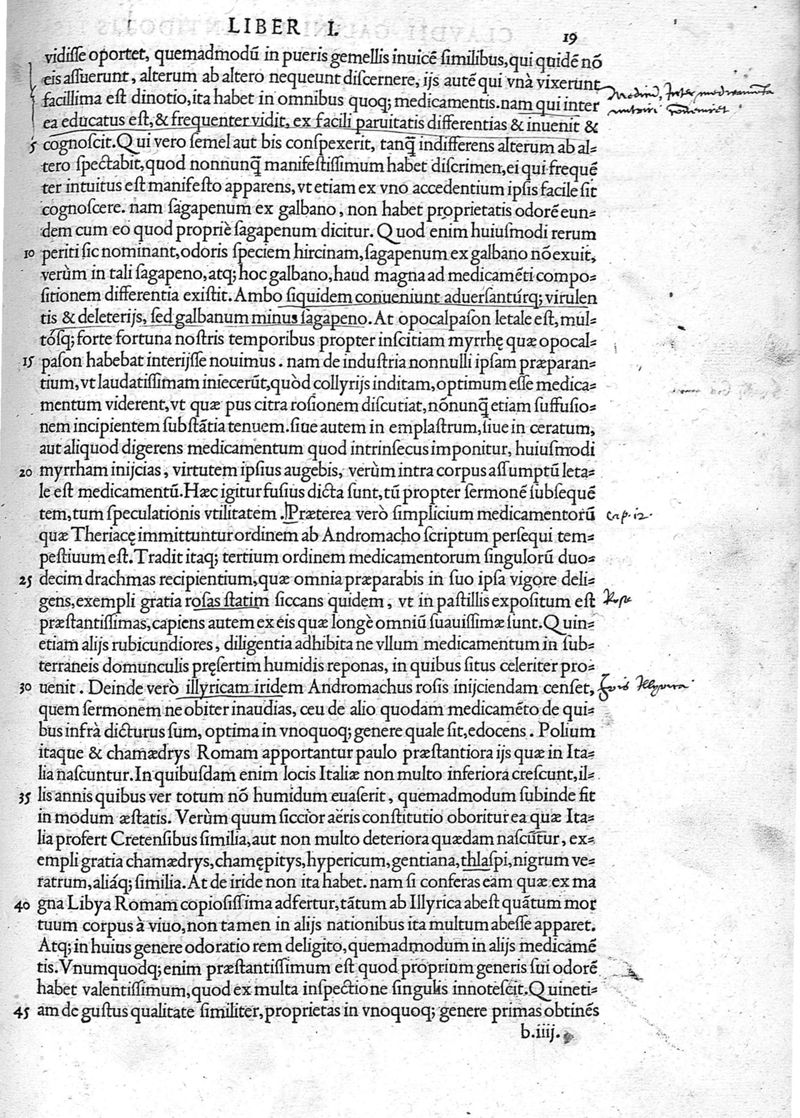 LIBER I.
19
vidisse oportet, quemadmodũ in pueris gemellis inuicẽ similibus, qui quidẽ nõ
eis assuerunt, alterum ab altero nequeunt discernere, ijs autẽ qui vnà vixerunt
facillima est dinotio, ita habet in omnibus quoq; medicamentis. nam qui inter
ea educatus est, & frequenter vidit, ex facili paruitatis differentias & inuenit &
5 cognoscit. Qui vero semel aut bis conspexerit, tanq̃ indifferens alterum ab al=
tero spectabit, quod nonnunq̃ manifestissimum habet discrimen, ei qui frequẽ
ter intuitus est manifesto apparens, vt etiam ex vno accedentium ipsis facile sit
cognoscere. nam sagapenum ex galbano, non habet proprietatis odorẽ eun=
dem cum eo quod propriè sagapenum dicitur. Quod enim huiusmodi rerum
10 periti sic nominant, odoris speciem hircinam, sagapenum ex galbano nõ exuit,
verùm in tali sagapeno, atq; hoc galbano, haud magna ad medicamẽti compo=
sitionem differentia existit. Ambo siquidem conueniunt aduersantúrq; virulen
tis & deleterijs, sed galbanum minus sagapeno. At opocalpason letale est, mul=
tósq; forte fortuna nostris temporibus propter inscitiam myrrhę quæ opocal=
15 pason habebat interijsse nouimus. nam de industria nonnulli ipsam præparan=
tium, vt laudatissimam iniecerũt, quòd collyrijs inditam, optimum esse medica=
mentum viderent, vt quæ pus citra rosionem discutiat, nõnunq̃ etiam suffusio=
nem incipientem substãtia tenuem. siue autem in emplastrum, siue in ceratum,
aut aliquod digerens medicamentum quod intrinsecus imponitur, huiusmodi
20 myrrham inijcias, virtutem ipsius augebis, verùm intra corpus assumptũ leta=
le est medicamentũ. Hæc igitur fusius dicta sunt, tũ propter sermonẽ subsequẽ
tem, tum speculationis vtilitatem. Præterea verò simplicium medicamentorũ
cap. 12.
quæ Theriacę immittuntur ordinem ab Andromacho scriptum persequi tem=
pestiuum est. Tradit itaq; tertium ordinem medicamentorum singulorũ duo=
25 decim drachmas recipientium, quæ omnia præparabis in suo ipsa vigore deli=
gens, exempli gratia rosas statim siccans quidem, vt in pastillis expositum est
præstantissimas, capiens autem ex eis quæ longè omniũ suauissimæ sunt. Quin=
etiam alijs rubicundiores, diligentia adhibita ne vllum medicamentum in sub=
terraneis domunculis pręsertim humidis reponas, in quibus situs celeriter pro=
30 uenit. Deinde verò illyricam iridem Andromachus rosis inijciendam censet,
quem sermonem ne obiter inaudias, ceu de alio quodam medicamẽto de qui=
bus infrà dicturus sum, optima in vnoquoq; genere quale sit, edocens. Polium
itaque & chamædrys Romam apportantur paulo præstantiora ijs quæ in Ita=
lia nascuntur. In quibusdam enim locis Italiæ non multo inferiora crescunt, il=
35 lis annis quibus ver totum nõ humidum euaserit, quemadmodum subinde fit
in modum æstatis. Verùm quum siccior aëris constitutio oboritur ea quæ Ita=
lia profert Cretensibus similia, aut non multo deteriora quædam nascũtur, ex=
empli gratia chamædrys, chamępitys, hypericum, gentiana, thlaspi, nigrum ve=
ratrum, aliáq; similia. At de iride non ita habet. nam si conferas eam quæ ex ma
40 gna Libya Romam copiosissima adfertur, tãtum ab Illyrica abest quãtum mor
tuum corpus à viuo, non tamen in alijs nationibus ita multum abesse apparet.
Atq; in huius genere odoratio rem deligito, quemadmodum in alijs medicamẽ
tis. Vnumquodq; enim præstantissimum est quod proprium generis sui odorẽ
habet valentissimum, quod ex multa inspectione singulis innotescit. Quineti=
45 am de gustus qualitate similiter, proprietas in vnoquoq; genere primas obtinẽs
b.iiij.